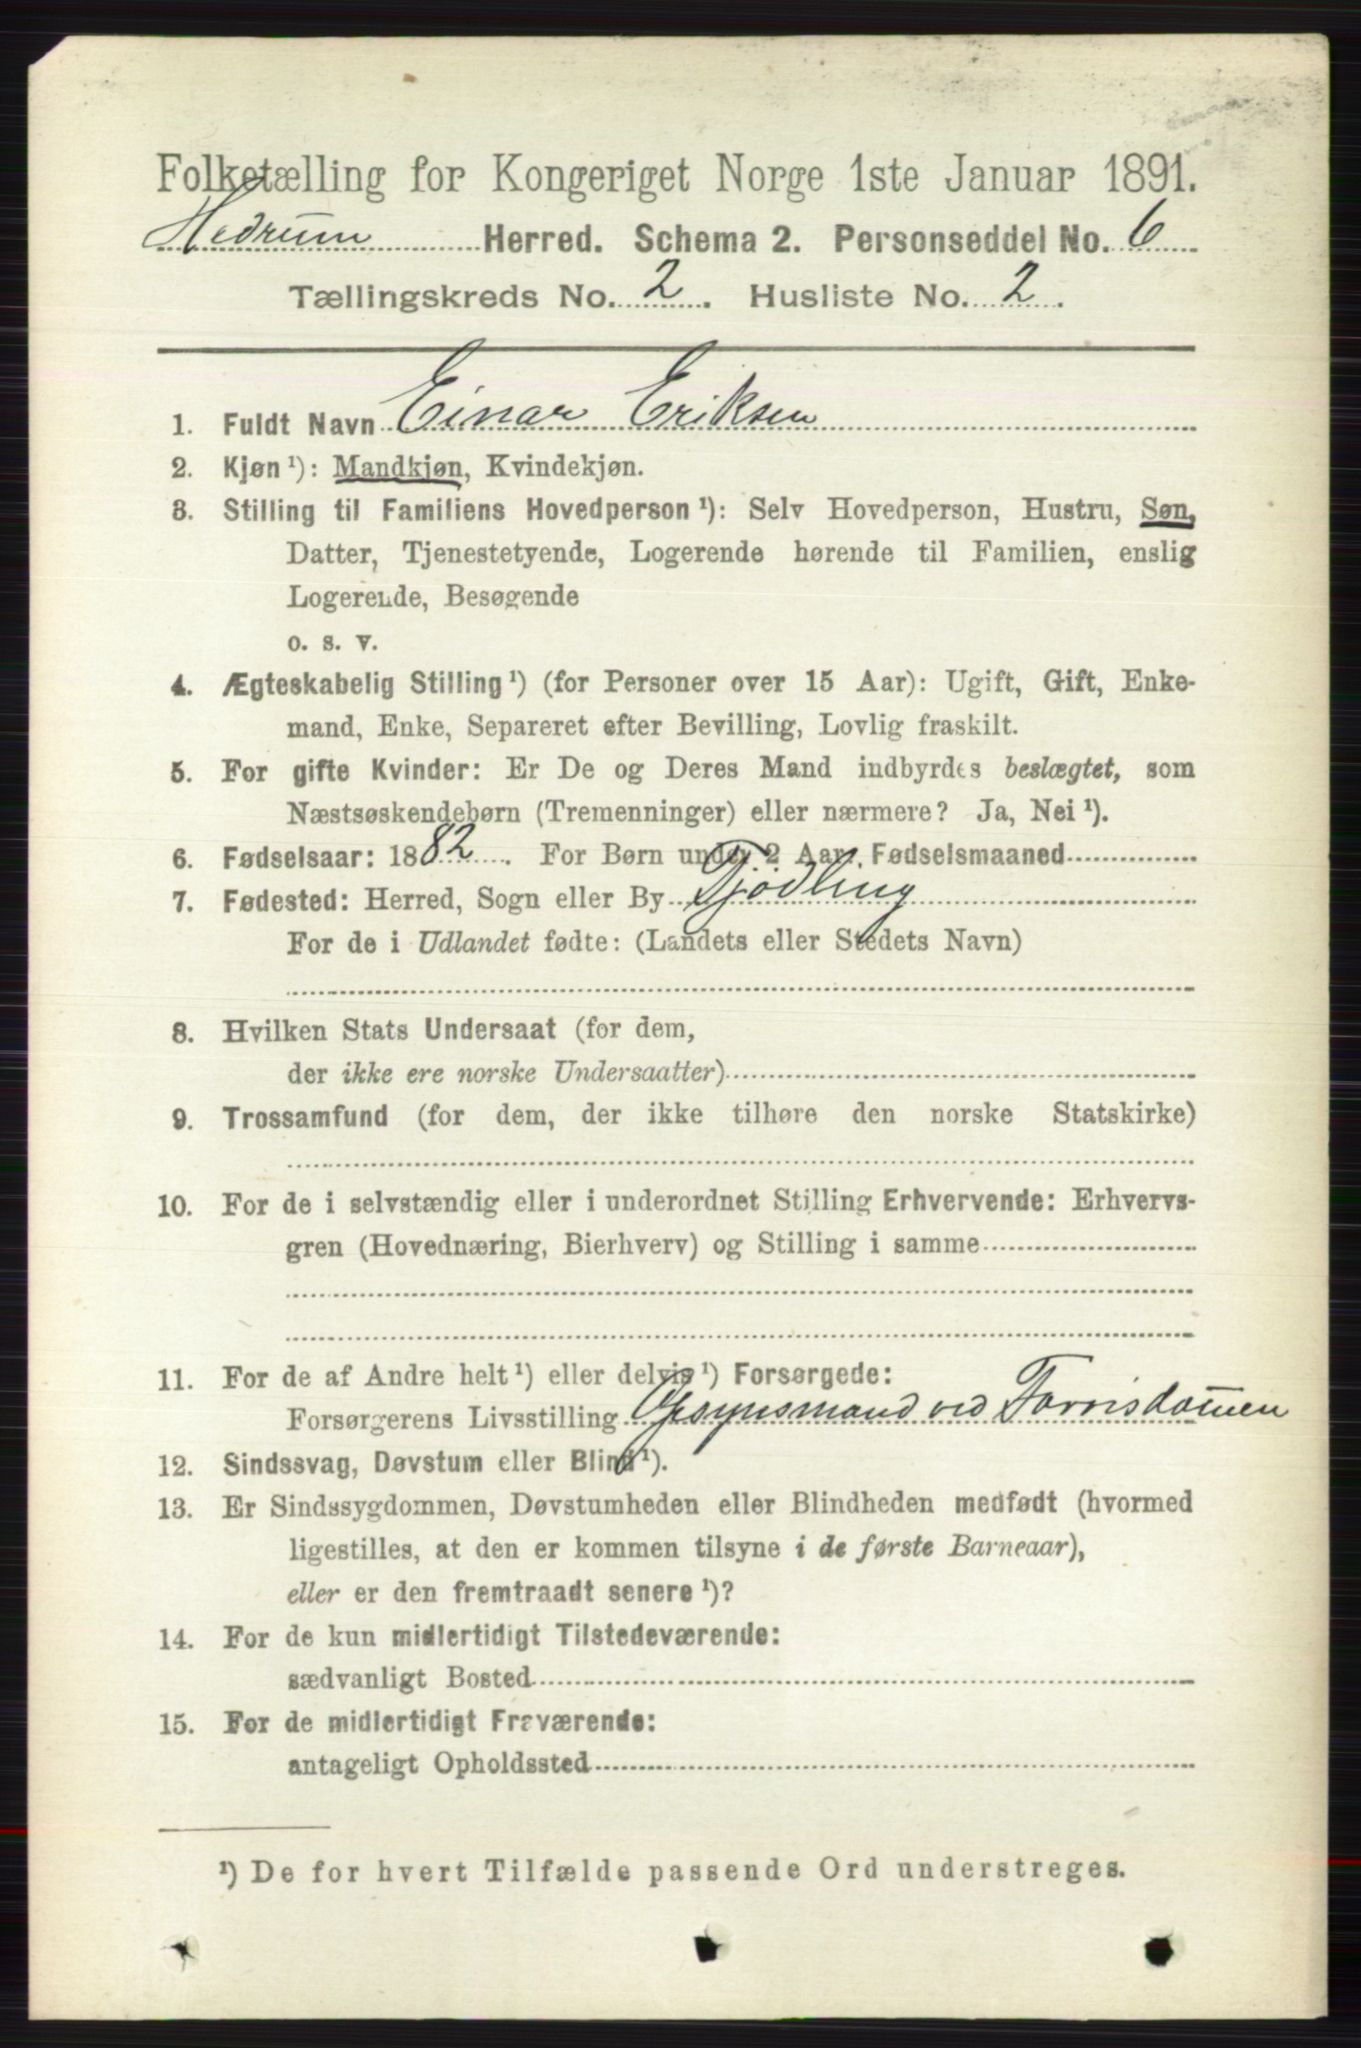 Folketælling for Kongeriget Norge 1ste Januar 1891.
Hedrum Herred. Schema 2. Personseddel No. 6
Tællingskreds No. 2. Husliste No. 2.
1. Fuldt Navn Einar Eriksen
2. Kjøn ¹): Mandkjøn, Kvindekjøn.
3. Stilling til Familiens Hovedperson ¹): Selv Hovedperson, Hustru, Søn,
Datter, Tjenestetyende, Logerende hørende til Familien, enslig
Logerende, Besøgende
o. s. v.
4. Ægteskabelig Stilling ¹) (for Personer over 15 Aar): Ugift, Gift, Enke-
mand, Enke, Separeret efter Bevilling, Lovlig fraskilt.
5. For gifte Kvinder: Er De og Deres Mand indbyrdes beslægtet, som
Næstsøskendebørn (Tremenninger) eller nærmere? Ja, Nei ¹).
6. Fødselsaar: 1882. For Børn under 2 Aar, Fødselsmaaned
7. Fødested: Herred, Sogn eller By Tjödling
For de i Udlandet fødte: (Landets eller Stedets Navn)
8. Hvilken Stats Undersaat (for dem,
der ikke ere norske Undersaatter)
9. Trossamfund (for dem, der ikke tilhøre den norske Statskirke)
10. For de i selvstændig eller i underordnet Stilling Erhvervende: Erhvervs-
gren (Hovednæring, Bierhverv) og Stilling i samme
11. For de af Andre helt ¹) eller delvis ¹) Forsørgede:
Forsørgerens Livsstilling Opsynsmand ved
12. Sindssvag, Døvstum eller Blind ¹).
13. Er Sindssygdommen, Døvstumheden eller Blindheden medfødt (hvormed
ligestilles, at den er kommen tilsyne i de første Barneaar),
eller er den fremtraadt senere ¹)?
14. For de kun midlertidigt Tilstedeværende:
sædvanligt Bosted
15. For de midlertidigt Fraværende:
antageligt Opholdssted
¹) De for hvert Tilfælde passende Ord understreges.